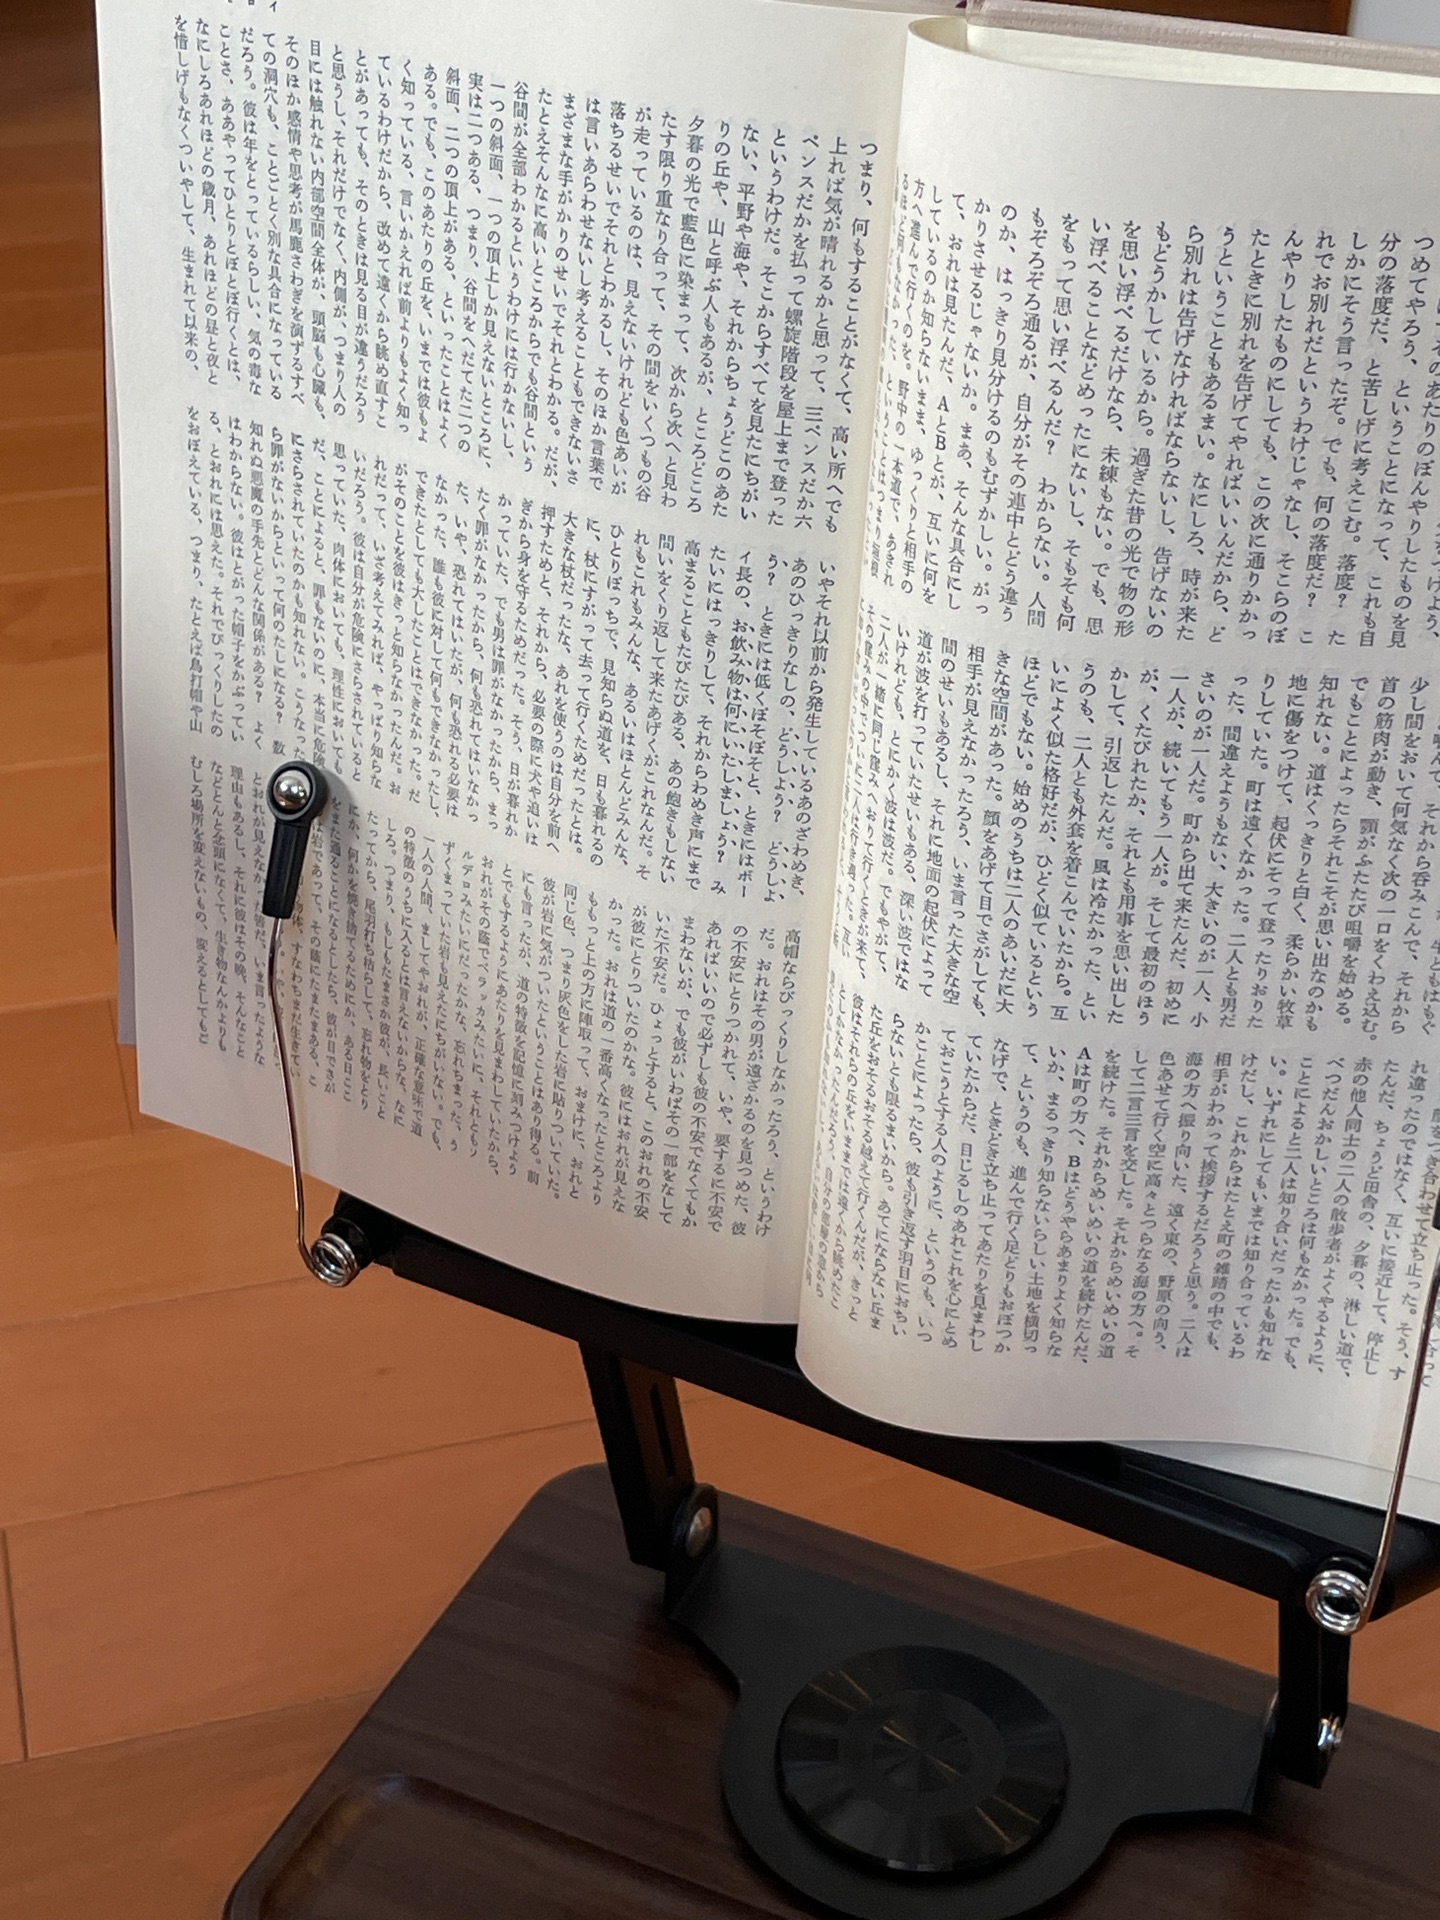 つめてやろう、ということになって、これも自
分の落度だ、と苦しげに考えこむ。落度?　た
しかにそう言ったぞ。でも、何の落度だ?　こ
れでお別れだというわけじゃなし、そこらのぼ
んやりしたものにしても、この次に通りかかっ
たときに別れを告げてやればいいんだから、ど
うということもあるまい。なにしろ、時が来た
ら別れは告げなければならないし、告げないの
もどうかしているから。過ぎた昔の光で物の形
を思い浮べるだけなら、未練もない。でも、思
い浮べることなどめったにないし、そもそも何
をもって思い浮べるんだ?　わからない。人間
もぞろぞろ通るが、自分がその連中とどう違う
のか、はっきり見分けるのもむずかしい。がっ
かりさせるじゃないか。まあ、そんな具合にし
て、おれは見たんだ、AとBとが、互いに何を
しているのか知らないまま、ゆっくりと相手の
方へ進んで行くのを。野中の一本道で、あきれ
少し間をおいて何気なく次の一口をくわえ込む。
首の筋肉が動き、顎がふたたび咀嚼を始める。
でもことによったらそれこそが思い出なのかも
知れない。道はくっきりと白く、柔らかい牧草
地に傷をつけて、起伏にそって登ったりおりた
りしていた。町は遠くなかった。二人とも男だ
った、間違えようもない、大きいのが一人、小
さいのが一人だ。町から出て来たんだ、初めに
一人が、続いてもう一人が。そして最初のほう
が、くたびれたか、それとも用事を思い出した
かして、引返したんだ。風は冷たかった、とい
うのも、二人とも外套を着こんでいたから。互
いによく似た格好だが、ひどく似ているという
ほどでもない。始めのうちは二人のあいだに大
きな空間があった。顔をあげて目でさがしても、
相手が見えなかったろう、いま言った大きな空
間のせいもあるし、それに地面の起伏によって
道が波を打っていたせいもある、深い波ではな
いけれども、とにかく波は波だ。でもやがて、
二人が一緒に同じ窪みへおりて行くときが来て、
れ違ったのではなく、互いに接近して、停止し
たんだ、ちょうど田舎の、夕暮の、淋しい道で、
赤の他人同士の二人の散歩者がよくやるように、
べつだんおかしいところは何もなかった。でも、
ことによると二人は知り合いだったかも知れな
い。いずれにしてもいまでは知り合っているわ
けだし、これからはたとえ町の雑踏の中でも、
相手がわかって挨拶するだろうと思う。二人は
海の方へ振り向いた、遠く東の、野原の向う、
色あせて行く空に高々とつらなる海の方へ。そ
して二言三言を交した。それからめいめいの道
を続けた。それからめいめいの道を続けたんだ、
Aは町の方へ、Bはどうやらあまりよく知らな
いか、まるっきり知らないらしい土地を横切っ
て、というのも、進んで行く足どりもおぼつか
なげで、ときどき立ち止ってあたりを見まわし
ていたからだ、目じるしのあれこれを心にとめ
ておこうとする人のように、というのも、いつ
かことによったら、彼も引き返す羽目におちい
らないとも限るまいから。あてにならない丘ま
た丘をおそるおそる越えて行くんだが、きっと
つまり、何もすることがなくて、高い所へでも
上れば気が晴れるかと思って、三ペンスだか六
ペンスだかを払って螺旋階段を屋上まで登った
というわけだ。そこからすべてを見たにちがい
ない、平野や海や、それからちょうどこのあた
りの丘や、山と呼ぶ人もあるが、ところどころ
夕暮の光で藍色に染まって、次から次へと見わ
たす限り重なり合って、その間をいくつもの谷
が走っているのは、見えないけれども色あいが
落ちるせいでそれとわかるし、そのほか言葉で
は言いあらわせないし考えることもできないさ
まざまな手がかりのせいでそれとわかる。だが、
たとえそんなに高いところからでも谷間という
谷間が全部わかるというわけには行かないし、
一つの斜面、一つの頂上しか見えないところに、
実は二つある、つまり、谷間をへだてた二つの
斜面、二つの頂上がある、といったことはよく
ある。でも、このあたりの丘を、いまでは彼もよ
く知っている、言いかえれば前よりもよく知っ
ているわけだから、改めて遠くから眺め直すこ
とがあっても、そのときは見る目が違うだろう
と思うし、それだけでなく、内側が、つまり人の
目には触れない内部空間全体が、頭脳も心臓も、
そのほか感情や思考が馬鹿さわぎを演ずるすべ
ての洞穴も、ことごとく別な具合になっている
だろう。彼は年をとっているらしい、気の毒な
ことさ、ああやってひとりとぼとぼ行くとは、
なにしろあれほどの歳月、あれほどの昼と夜と
を惜しげもなくついやして、生まれて以来の、
いやそれ以前から発生しているあのざわめき、
あのひっきりなしの、どうしよう?　どうしよ
う?　ときには低くぼそぼそと、ときにはボー
イ長の、お飲み物は何にいたしましょう?　み
たいにはっきりして、それからわめき声にまで
高まることもたびたびある、あの飽きもしない
問いをくり返して来たあげくがこれなんだ。そ
れもこれもみんな、あるいはほとんどみんな、
ひとりぼっちで、見知らぬ道を、日も暮れるの
に、杖にすがって去って行くためだったとは。
大きな杖だったな、あれを使うのは自分を前へ
押すためと、それから、必要の際に犬や追いは
ぎから身を守るためだった。そう、日が暮れか
かっていた、でも男は罪がなかったから、まっ
たく罪がなかったから、何も恐れてはいなかっ
た、いや、恐れてはいたが、何も恐れる必要は
なかった、誰も彼に対して何もできなかったし、
できたとしても大したことはできなかった。だ
がそのことを彼はきっと知らなかったんだ。お
れだって、いざ考えてみれば、やっぱり知らな
いだろう。彼は自分が危険にさらされていると
思っていた、肉体においても、理性においても
だ、ことによると、罪もないのに、本当に危険
にさらされていたのかも知れない。こうなった
ら罪がないからといって何のたしになる?　数
知れぬ悪魔の手先とどんな関係がある?　よく
はわからない。彼はとがった帽子をかぶってい
る、とおれには思えた。それでびっくりしたの
をおぼえている、つまり、たとえば鳥打帽や山
高帽ならびっくりしなかったろう、というわけ
だ。おれはその男が遠ざかるのを見つめた、彼
の不安にとりつかれて、いや、要するに不安で
あればいいので必ずしも彼の不安でなくてもか
まわないが、でも彼がいわばその一部をなして
いた不安だ。ひょっとすると、このおれの不安
が彼にとりついたのかな。彼にはおれが見えな
かった。おれは道の一番高くなったところより
ももっと上の方に陣取って、おまけに、おれと
同じ色、つまり灰色をした岩に貼りついていた。
彼が岩に気がついたということはあり得る。前
にも言ったが、道の特徴を記憶に刻みつけよう
とでもするようにあたりを見まわしていたから、
おれがその蔭でベラッカみたいに、それともソ
ルデロみたいにだったかな、忘れちまった、う
ずくまっていた岩も見えたにちがいない。でも、
一人の人間、ましてやおれが、正確な意味で道
の特徴のうちに入るとは言えないからな、なに
しろ。つまり、もしもたまさか彼が、長いこと
たってから、尾羽打ち枯らして、忘れ物をとり
にか、何かを焼き捨てるためにか、ある日ここ
をまた通ることになるとしたら、彼が目でさが
とおれが見えなかった筈だ。いま言ったような
理山もあるし、それに彼はその晩、そんなこと
などとんと念頭になくて、生き物なんかよりも
むしろ場所を変えないもの、変えるとしてもご